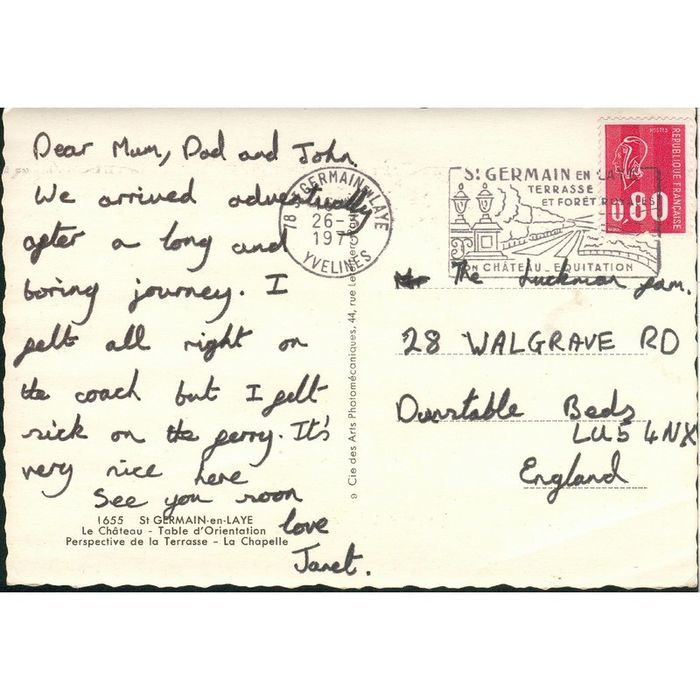 Dear Mum, Dad and John.
We arrived adventually
after a long and
boring journey. I
felt all right on
the coach but I felt
sick on the ferry. It's
very nice here
See you soon
love
Janet.
1655 St GERMAIN-en-LAYE
Le Château - Table d'Orientation
Perspective de la Terrasse - La Chapelle
9 Cie des Arts Photomécaniques, 44, rue
78 St GERMAIN EN LAYE
26-
197
YVELINES
St GERMAIN EN LAYE
TERRASSE
ET FORÊT ROYALES
SON CHÂTEAU _ EQUITATION
POSTES
REPUBLIQUE FRANÇAISE
0,80
The Luckman fam.
28 WALGRAVE RD
Dunstable Beds
LU5 4NX
England